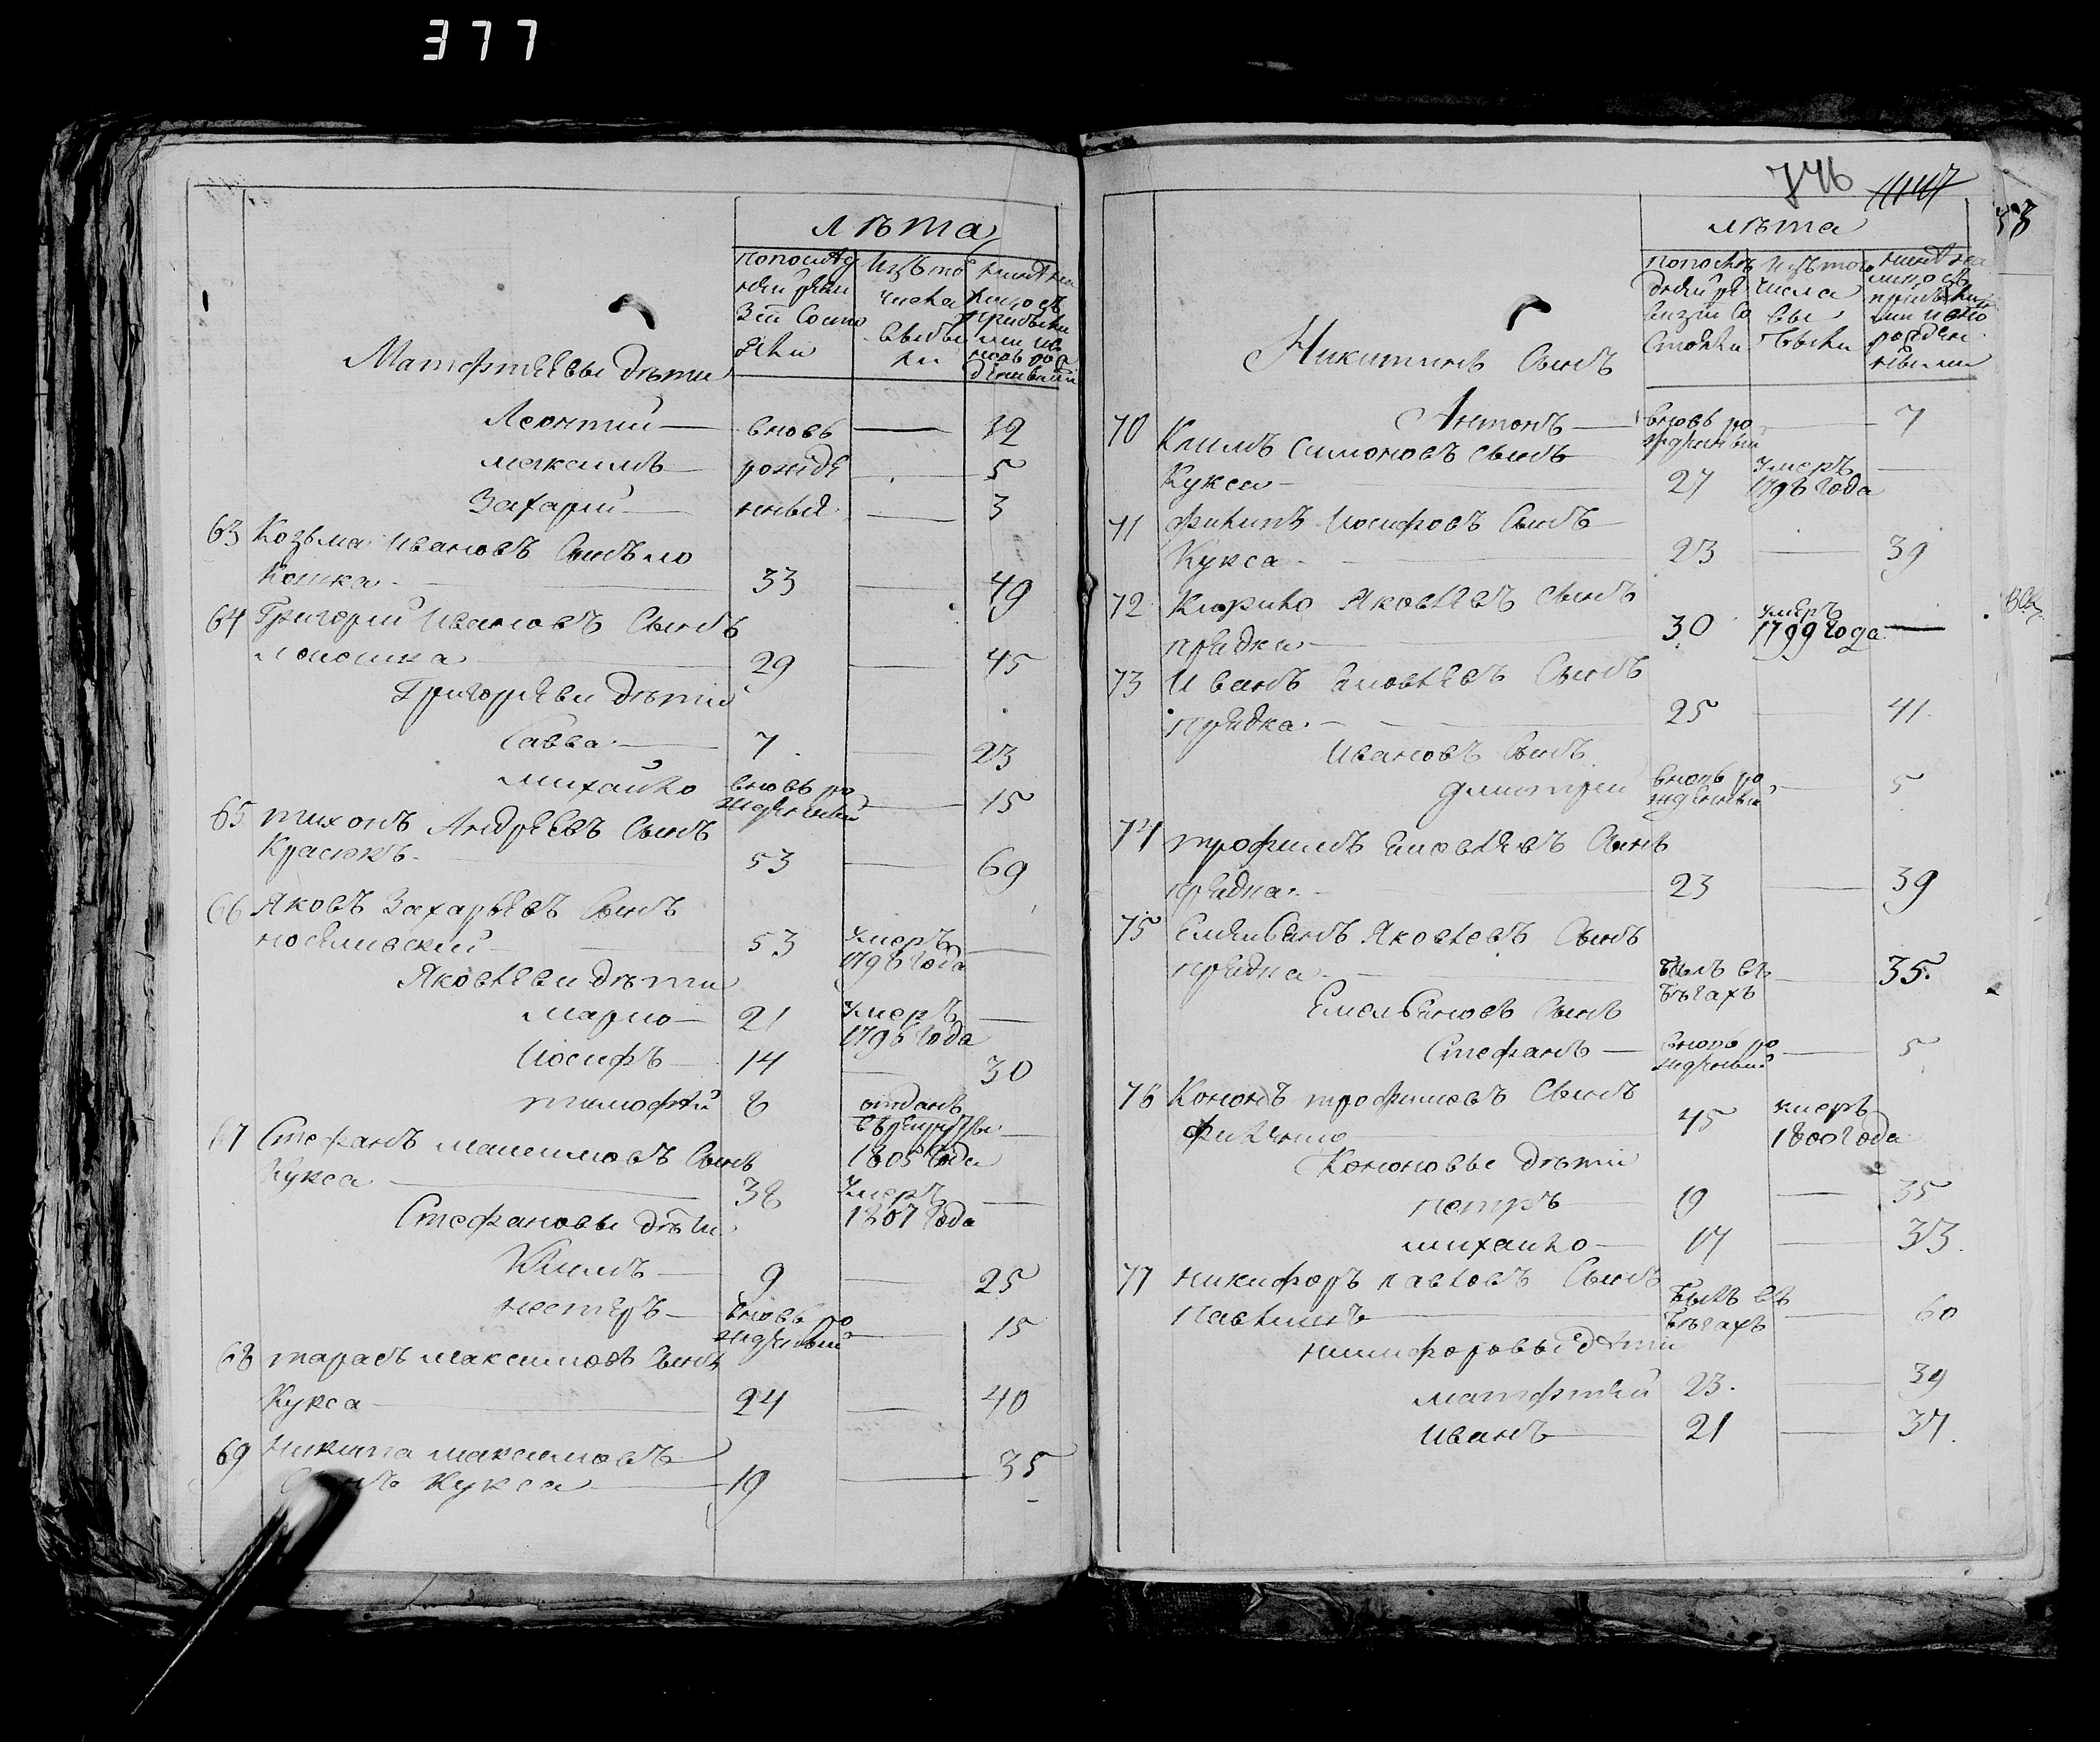 377
лѣта
по последней ревизіи состояли
изъ того числа выбыли
ныне на лицо съ прибылыми и вновь рожденными
Матфѣевы дѣти
Леонтий — вновь — 12
максимъ — рожде — 5
Захарий — нныя — 3
63 Козьма Ивановъ Сынъ ло
кошка — 33 — 49
64 Григорий Ивановъ Сынъ
локошка — 29 — 45
Григорьеви дѣти
Савва — 7 — 23
михайло вновь ро
жденный — 15
65 тихонъ Андреевъ Сынъ
Красюкъ — 53 — 69
66 Яковъ Захарьевъ Сынъ
носеливский — 53 умеръ 1796 года —
Яковлеви дѣти
марко — 21 умеръ 1796 года —
Иосифъ — 14 — 30
тимофей 8 отданъ в рекруты 1805 года —
67 Стефанъ максимовъ Сынъ
Кукса — 38 умеръ 1807 года —
Стефановы дѣти
Климъ — 9 — 25
нестеръ — вновь рожденный — 15
68 тарасъ максимовъ Сынъ
Кукса — 24 — 40
69 Никита максимовъ
Сынъ Кукса — 19 — 35
746
53
лѣта
по последней ревизии состояли
изъ того числа выбыли
ныне на лицо съ прибылыми и вновь рожденными
Никитинъ Сынъ
Антонъ — вновь рожденный — 7
70 Климъ Симоновъ Сынъ
Кукса — 27 умеръ 1796 года —
71 филипъ Иосифовъ Сынъ
Кукса — 23 — 39
72 Кирило Яковлевъ Сынъ
придка — 30 умеръ 1799 года —
73 Иванъ Яковлевъ Сынъ
придка — 25 — 41
Ивановъ Сынъ
дмитрей вновь рожденный — 5
74 трофимъ Яковлевъ Сынъ
придка — 23 — 39
75 Емельянъ Яковлевъ Сынъ
придка — былъ въ бѣгахъ — 35
Емельяновъ Сынъ
Стефанъ — вновь рожденный — 5
76 Кононъ трофимовъ Сынъ
филенко — 45 умеръ 1800 года
Кононовы дѣти
петръ 19 — 35
михайло — 17 — 33
77 никифоръ павловъ Сынъ
павлинъ — былъ въ бѣгахъ — 60
никифоровы дѣти
матфѣй 23 — 39
иванъ — 21 — 37